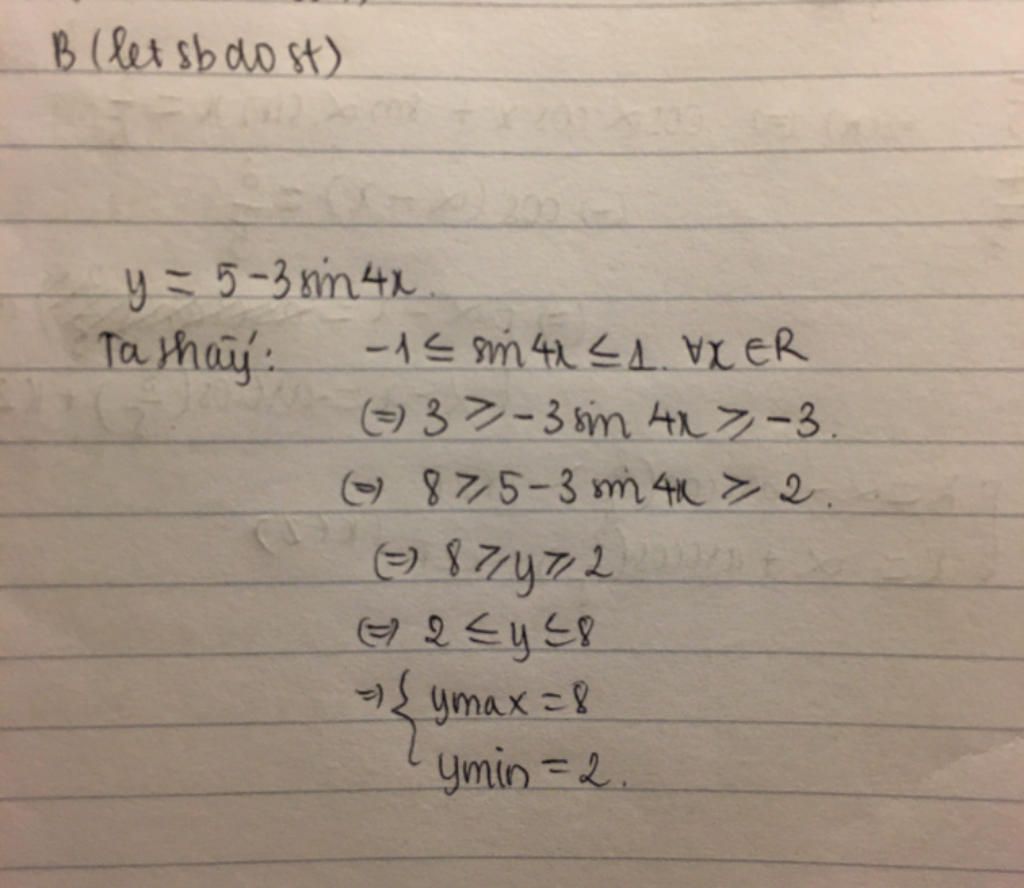 B (let sb do st)
y = 5 - 3 sin 4x.
Ta thấy: -1 ≤ sin 4x ≤ 1. ∀x ∈ R
(=) 3 ⩾ -3 sin 4x ⩾ -3.
(=) 8 ⩾ 5 - 3 sin 4x ⩾ 2.
(=) 8 ⩾ y ⩾ 2
(=) 2 ≤ y ≤ 8
=) { ymax = 8
ymin = 2.